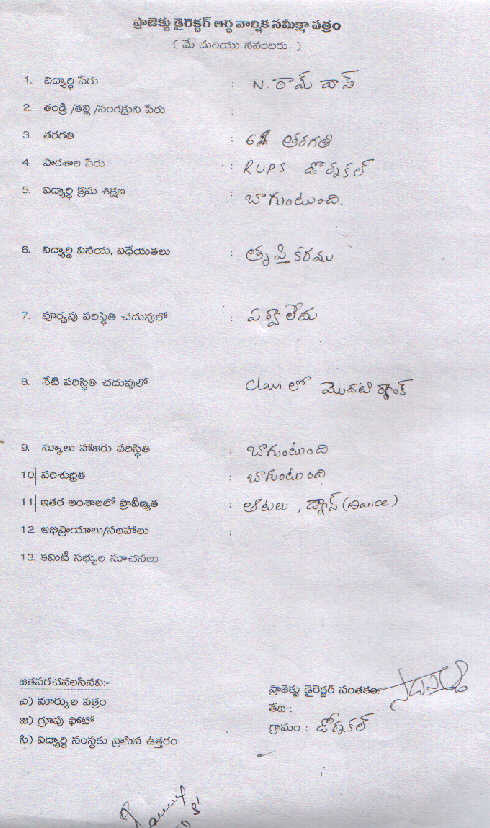 ప్రాజెక్టు డైరెక్టర్ అర్ధ వార్షిక సమీక్షా పత్రం
( మే మరియు నవంబరు )
1. విద్యార్థి పేరు : N. రామ్ దాస్
2. తండ్రి /తల్లి /సంరక్షకుని పేరు :
3. తరగతి : 6వ తరగతి
4. పాఠశాల పేరు : RUPS డోర్నకల్
5. విద్యార్థి క్రమ శిక్షణ : బాగుంటుంది.
6. విద్యార్థి వినయ, విధేయతలు : తృప్తి కరము
7. పూర్వపు పరిస్థితి చదువులో : పర్వాలేదు
8. నేటి పరిస్థితి చదువులో : Class లో మొదటి ర్యాంక్
9. స్కూలు హాజరు పరిస్థితి : బాగుంటుంది
10) పరిశుభ్రత : బాగుంటుంది.
11) ఇతర అంశాలలో ప్రావీణ్యత : ఆటలు , డ్యాన్స్ (Dance)
12. అభిప్రాయాలు/సలహాలు :
13. కమిటీ సభ్యుల సూచనలు
జతపరచవలసినవి:-
ఎ) మార్కుల పత్రం
బి) గ్రూపు ఫోటో
సి) విద్యార్థి సంస్థకు వ్రాసిన ఉత్తరం
ప్రాజెక్టు డైరెక్టర్ సంతకం
తేది :
గ్రామం : డోర్నకల్